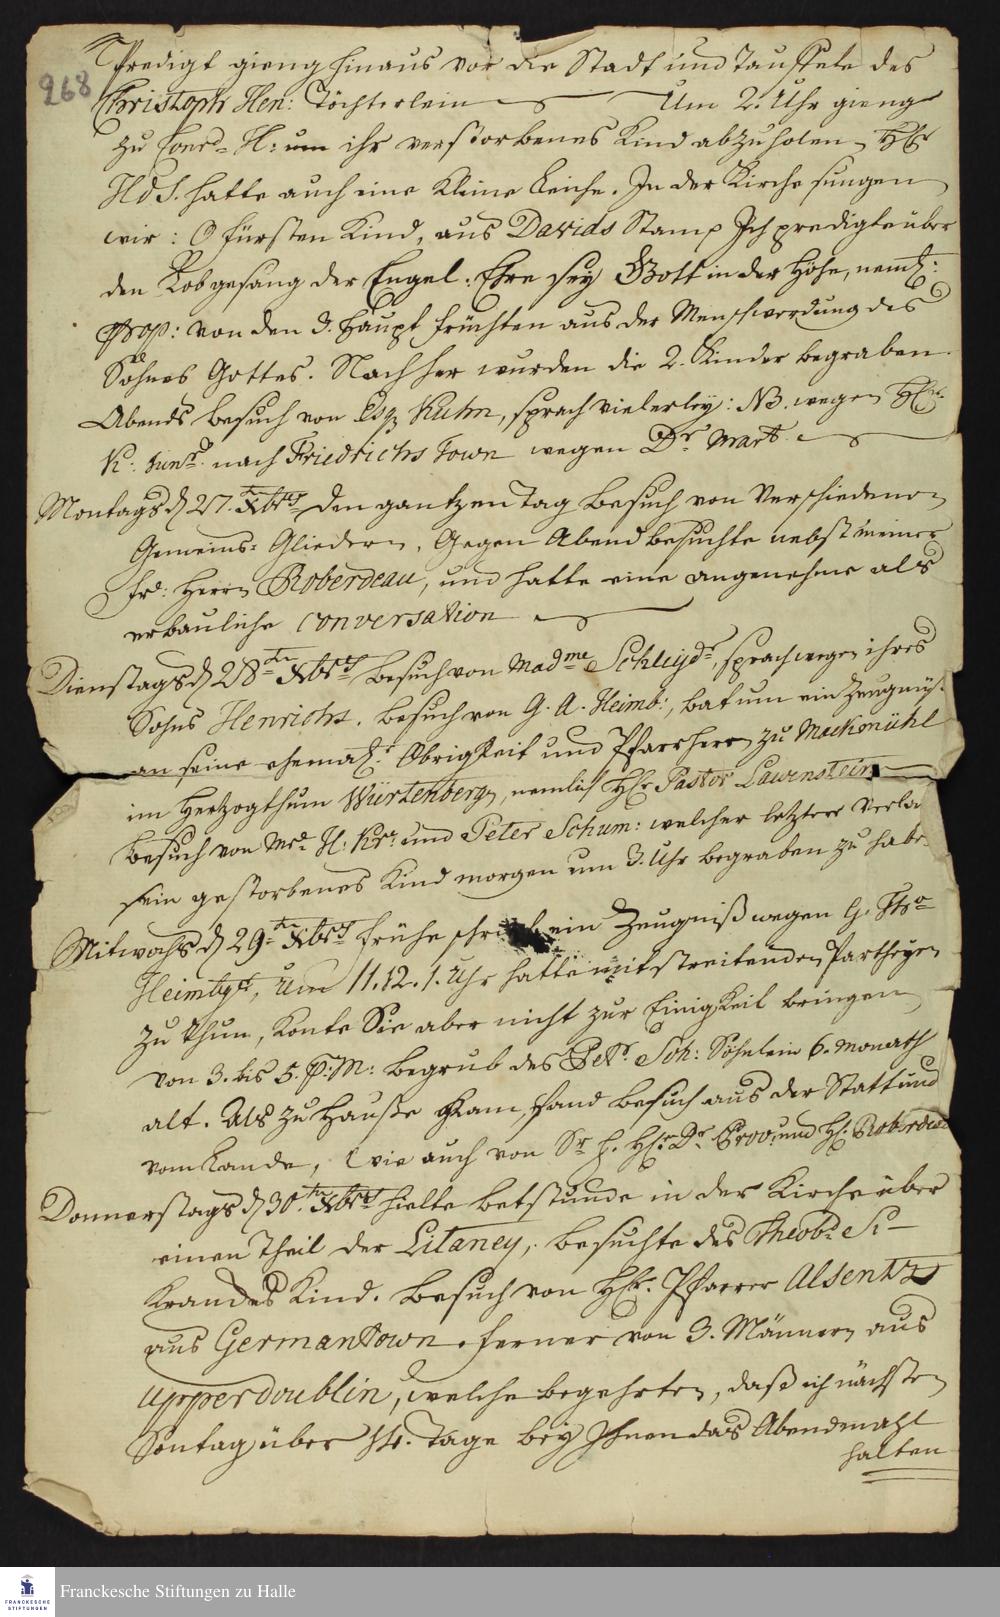 268
Predigt gieng hinaus vor die Stadt und Tauffete des
Christoph Hen: Töchterlein Um 2. Uhr gieng
zu Conr- H: um ihr verstorbenes Kind abzuholen,
H d S. hatte auch eine kleine Leiche. In der Kirche sungen
wir: O Fürsten Kind, aus Davids Stamm Ich predigte über
den Lobgesang der Engel: Ehre sey Gott in der Höhe, neml:
Prop: von den 3. Haupt früchten aus der Menschwerdung des
Sohnes Gottes. Nach her wurden die 2. Kinder begraben.
Abends besuch von Esq Kuhn, sprach vielerley: NB. wegen
K: Junr. nach Friedrichs Town wegen Dr Mart.
Montags d 27. Xbris den gantzen Tag besuch von Verschiedenen
Gemeins- Gliedern, Gegen Abend besuchte nebst meiner
Fr: Herrn Roberdeau, und hatte eine angenehme als
erbauliche Conversation
Dienstags d 28ten Xbris besuch von Madme Schleyd, sprach wegen ihres
Sohns Henrichs. besuch von G. A. Heimb:, bat um ein Zeugniß
an seine ehemal: Obrigkeit und Pfarrherrn zu Mackmühl
im Hertzogthum Würtenberg, nemlich HE Pastor Lawenstein
besuch von Mr. H: Kr: und Peter Schum: welcher letztere
sein gestorbenes Kind morgen um 3. Uhr begraben zu haben
Mitwochs d 29ten Xbris frühe schrieb ein Zeugniß wegen G.
Heimbg, Um 11. 12. 1. Uhr hatte mit streitenden Partheyen
zu thun, konte Sie aber nicht zur Einigkeit bringen,
von 3. bis 5. P: M: begrub des Pet. Sch: Söhnlein 6. Monath
alt. Als zu Hause kam, fand besuch aus der Statt und
vom Lande, wie auch von Sr H. HE Dr Prov: und H: Roberdeau
Donnerstags d 30.ten Xbris hielte betstunde in der Kirche über
einen Theil der Litaney, besuchte des Theob:
Kranckes Kind. besuch von HE. Pfarrer Alsentz
aus Germantown, ferner von 3. Männern aus
Upperdoublin, welche begehrten, daß ich nächsten
Sontag über 14. Tage bey Ihnen das Abendmahl
halten
Franckesche Stiftungen zu Halle
FRANCKESCHE
STIFTUNGEN